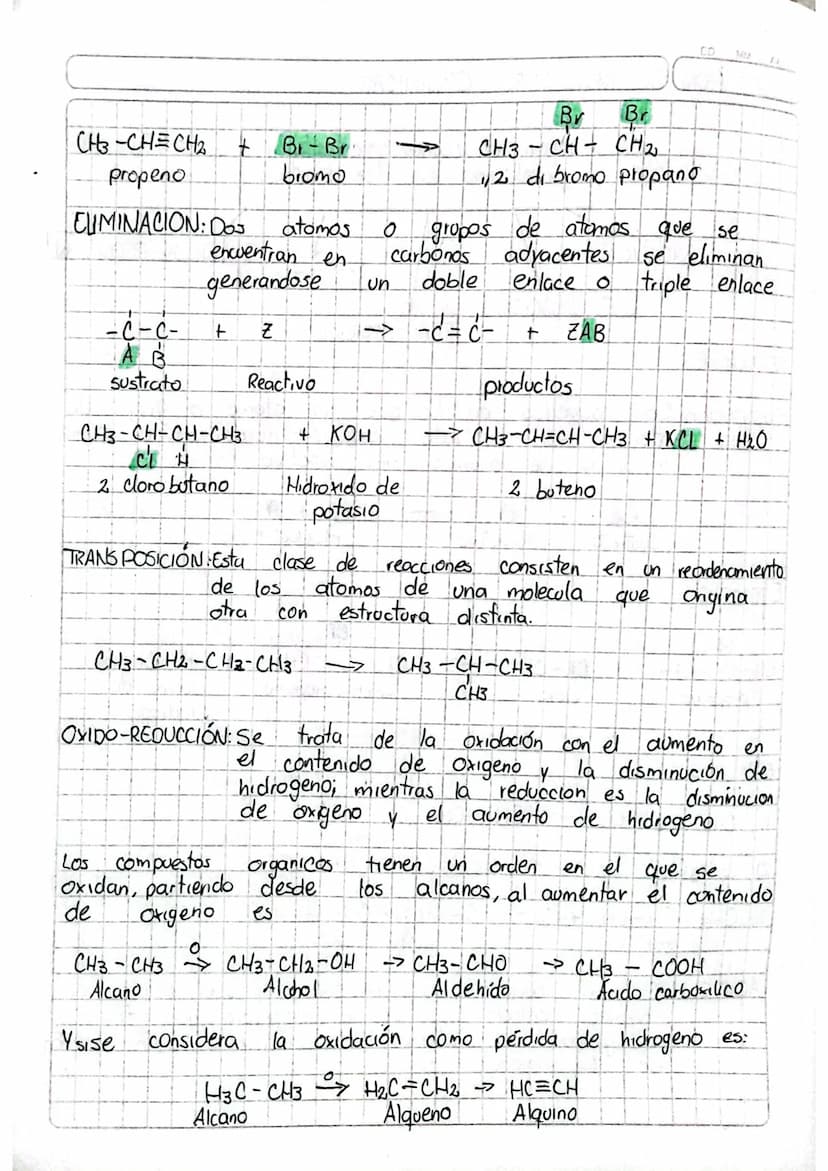 Br Br
CH3 -CH≡CH2 + Br-Br → CH3 - CH - CH2
propeno bromo 1,2 di bromo propano
ELIMINACION: Dos atomos o grupos de atomos que se
encuentran en carbonos adyacentes se eliminan
generandose un doble enlace o triple enlace
-C-C- + Z → -C=C- + ZAB
A B
sustrato Reactivo productos
CH3-CH-CH-CH3 + KOH → CH3-CH=CH-CH3 + KCL + H2O
Cl H
2 cloro botano Hidroxido de 2 buteno
potasio
TRANSPOSICIÓN: Esta clase de reacciones consisten en un reordenamiento
de los atomos de una molecula que origina
otra con estructura distinta.
CH3-CH2-CH2-CH3 → CH3-CH-CH3
CH3
OXIDO-REDUCCIÓN: Se trata de la oxidación con el aumento en
el contenido de oxigeno y la disminución de
hidrogeno; mientras la reduccion es la disminucion
de oxigeno y el aumento de hidrogeno
Los compuestos organicos tienen un orden en el que se
oxidan, partiendo desde los alcanos, al aumentar el contenido
de oxigeno es
O
CH3-CH3 → CH3-CH2-OH → CH3-CHO → CH3-COOH
Alcano Alchol Aldehido Ácido carboxilico
Y si se considera la oxidación como pérdida de hidrogeno es:
O
H3C-CH3 → H2C=CH2 → HC≡CH
Alcano Alqueno Alquino